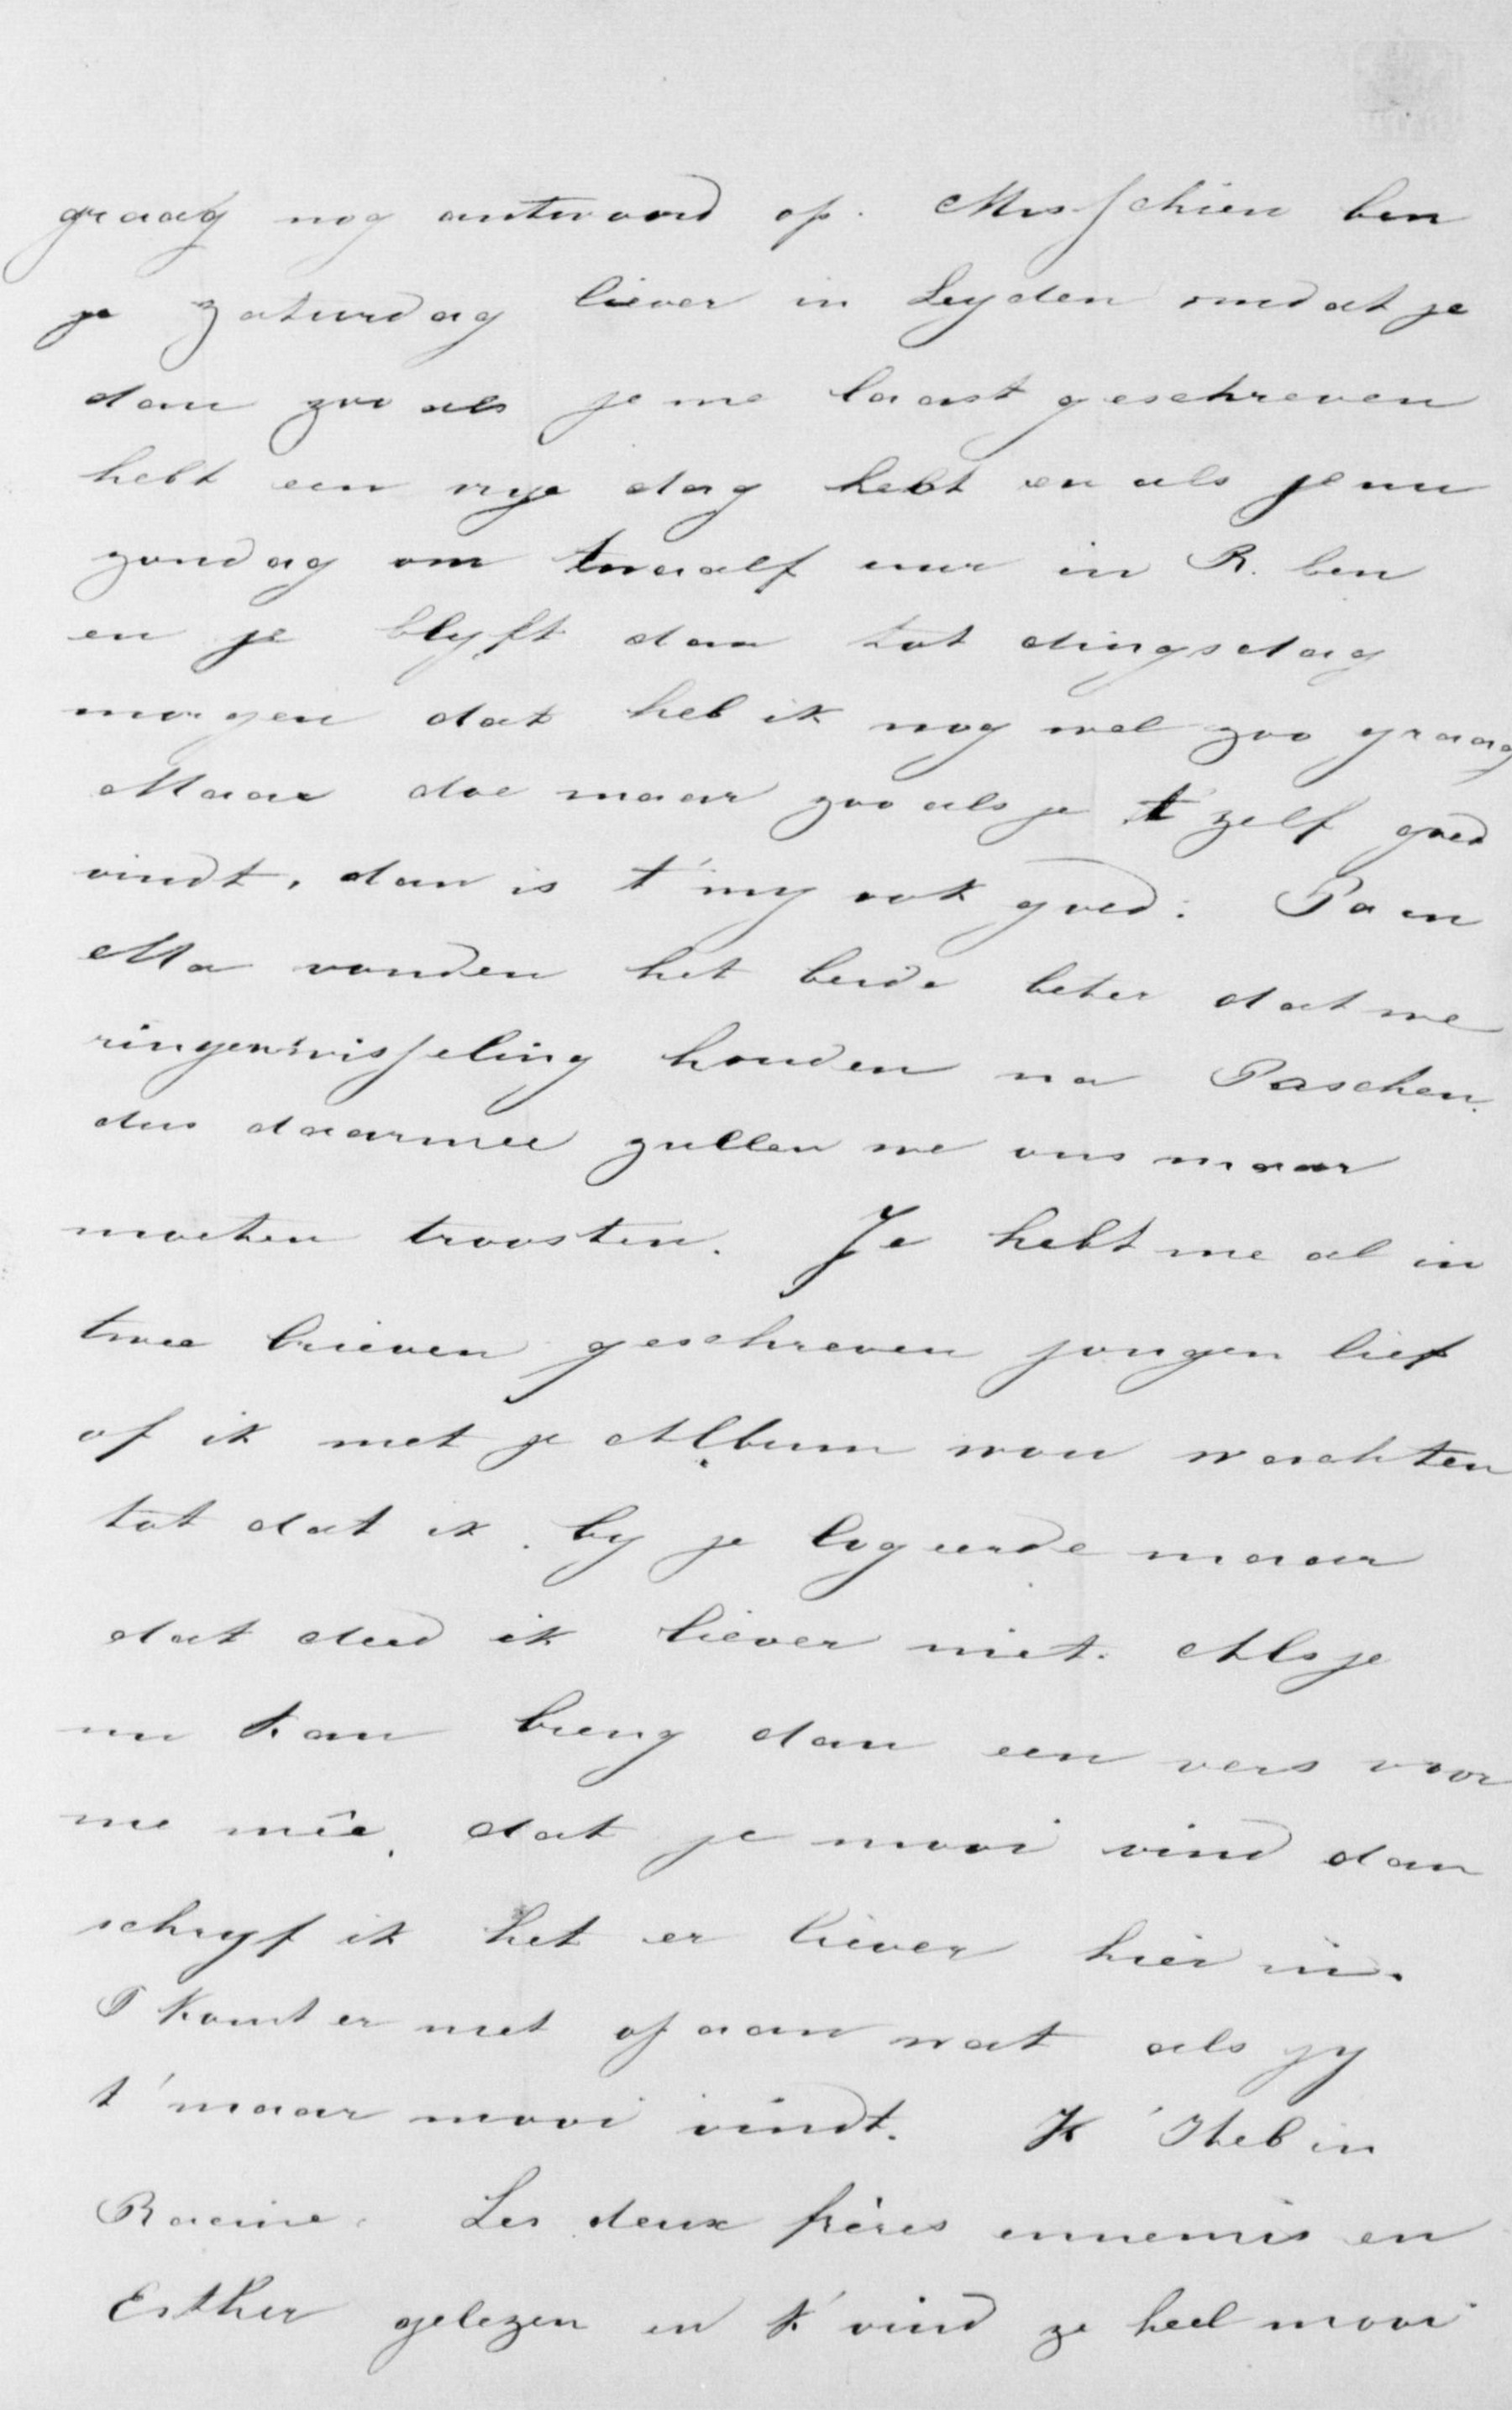 graag nog antwoord op. Misschien ben
je zaturdag liever in Leyden omdat je
dan zoo als je me laast geschreven
hebt een vrye dag hebt en als je nu
zondag om twaalf uur in R. ben
en je blyft dan tot dingsdag
morgen dat heb ik nog wel zoo graag
Maar doe maar zoo als je t' zelf goed
vindt, dan is t' my ook goed. Pa en
Ma vonden het beide beter dat we
ringenwisseling houden na Paschen.
dus daarmee zullen we ons maar
moeten troosten. Je hebt me al in
twee brieven geschreven jongen lief
of ik met je Album wou wachten
tot dat ik by je logeerde maar
dat deed ik liever niet. Als je
nu kan breng dan een vers voor
me mêe, dat je mooi vind dan
schryf ik het er liever hier in.
T komt er niet op aan wat als jy
t' maar mooi vindt. K' Heb in
Racine. Les deux frères ennemis en
Esther gelezen en k' vind ze heel mooi